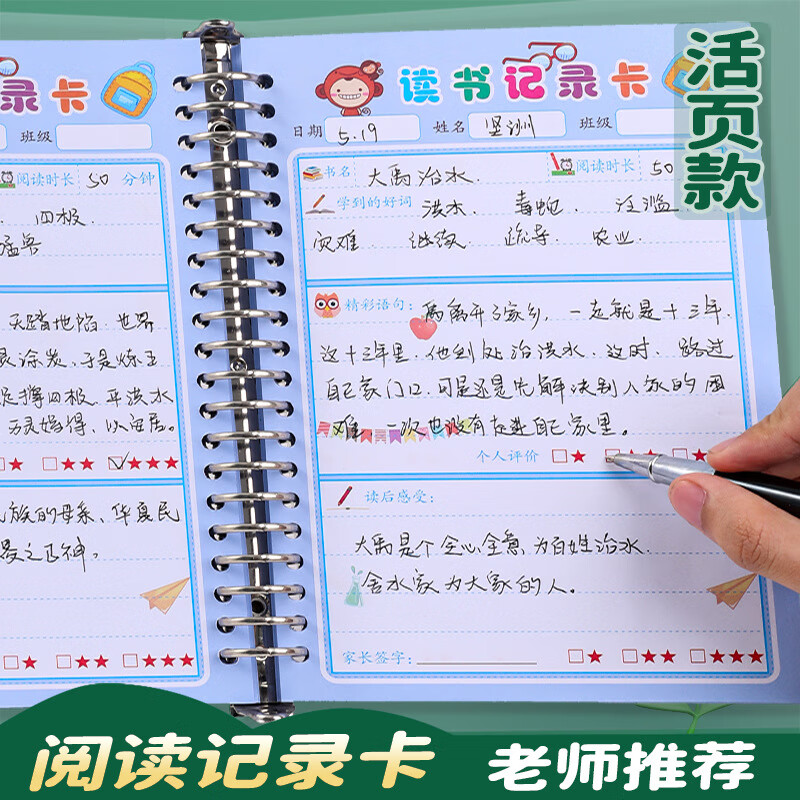 活页款
录卡
班级
阅读时长 50 分钟
四极
猛兽
天踏地陷.世界
涂炭.于是炼五
撑四极.平洪水
万灵始得.以安居。
★ ★★ ★★★
民族的母亲、华夏民
之正神。
★ ★★ ★★★
读书记录卡
日期 5.19 姓名 坚洲 班级
书名 大禹治水. 阅读时长 50
学到的好词 洪水. 毒蛇. 泛滥
灾难. 继续. 疏导. 农业.
精彩语句: 禹离开了家乡,一走就是十三年.
这十三年里.他到处治洪水.这时.路过
自己家门口.可是还是先解决别人家的困
难.一次也没有走进自己家里。
个人评价 ★ ★★ ★
读后感受:
大禹是个全心全意为百姓治水.
舍小家为大家的人。
家长签字: ★ ★★ ★★★
阅读记录卡 老师推荐